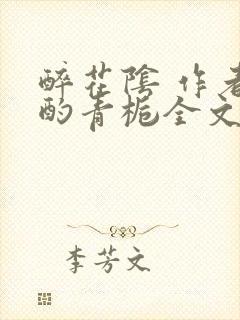 醉花陰 作者
酌青梔全文
李芳文